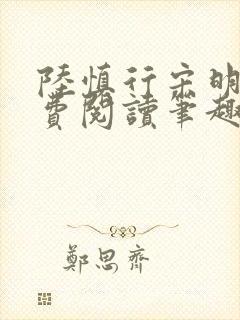 陸慎行宋明
費閱讀筆趣
鄭思齊